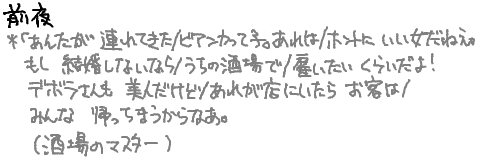 前夜
*「あんたが 連れてきた/ビアンカって子。あれは/ホントに いい女だねえ。
もし 結婚しないなら/うちの酒場で/雇いたい くらいだよ!
デボラさんも 美人だけど/あれが店にいたら お客は/
みんな 帰っちまうからなあ。
(酒場のマスター)